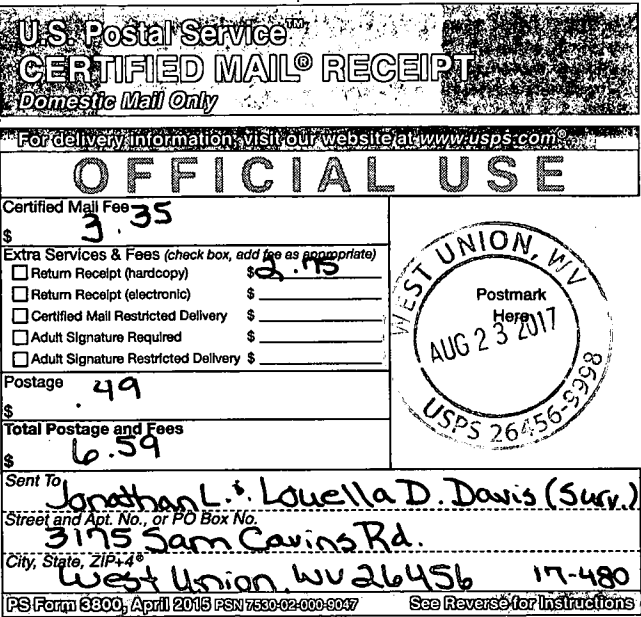 U.S. Postal Service™
CERTIFIED MAIL® RECEIPT
Domestic Mail Only
For delivery information, visit our website at www.usps.com®.
OFFICIAL USE
Certified Mail Fee
$ 3.35
Extra Services & Fees (check box, add fee as appropriate)
Return Receipt (hardcopy) $ 2.75
Return Receipt (electronic) $
Certified Mail Restricted Delivery $
Adult Signature Required $
Adult Signature Restricted Delivery $
Postage
$ .49
Total Postage and Fees
$ 6.59
WEST UNION, WV
Postmark
Here
AUG 23 2017
USPS 26456-9998
Sent To
Jonathan L. & Louella D. Davis (Surv.)
Street and Apt. No., or PO Box No.
3175 Sam Cavins Rd.
City, State, ZIP+4®
West Union, WV 26456 17-480
PS Form 3800, April 2015 PSN 7530-02-000-9047 See Reverse for Instructions